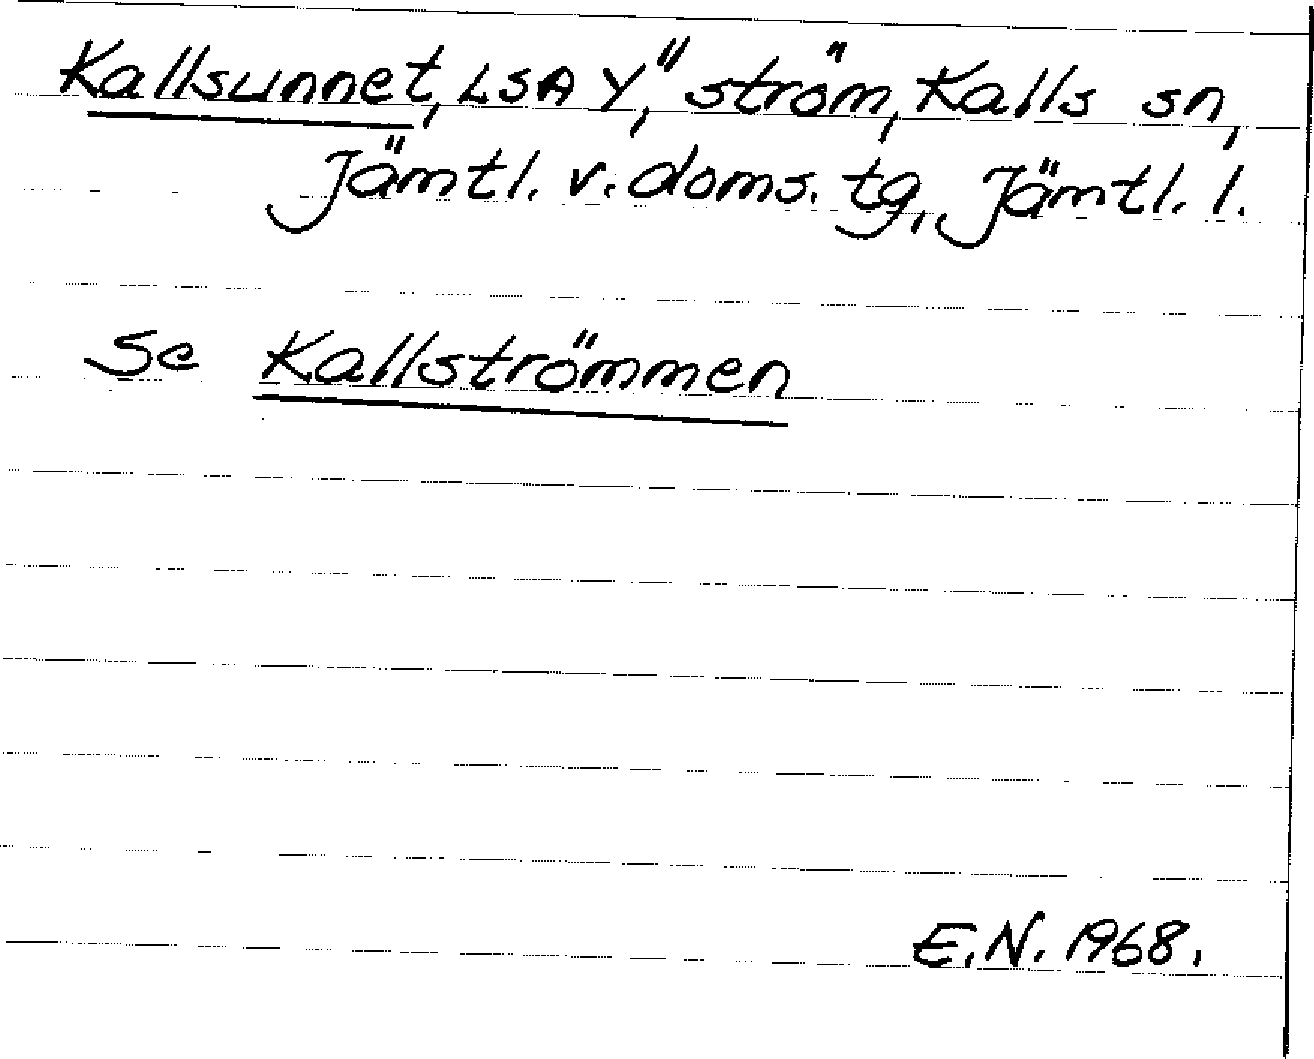 Kallsunnet, LSA Y," ström, Kalls sn,
Jämtl. v. doms. tg, Jämtl. l.
Se Kallströmmen
E.N. 1968.